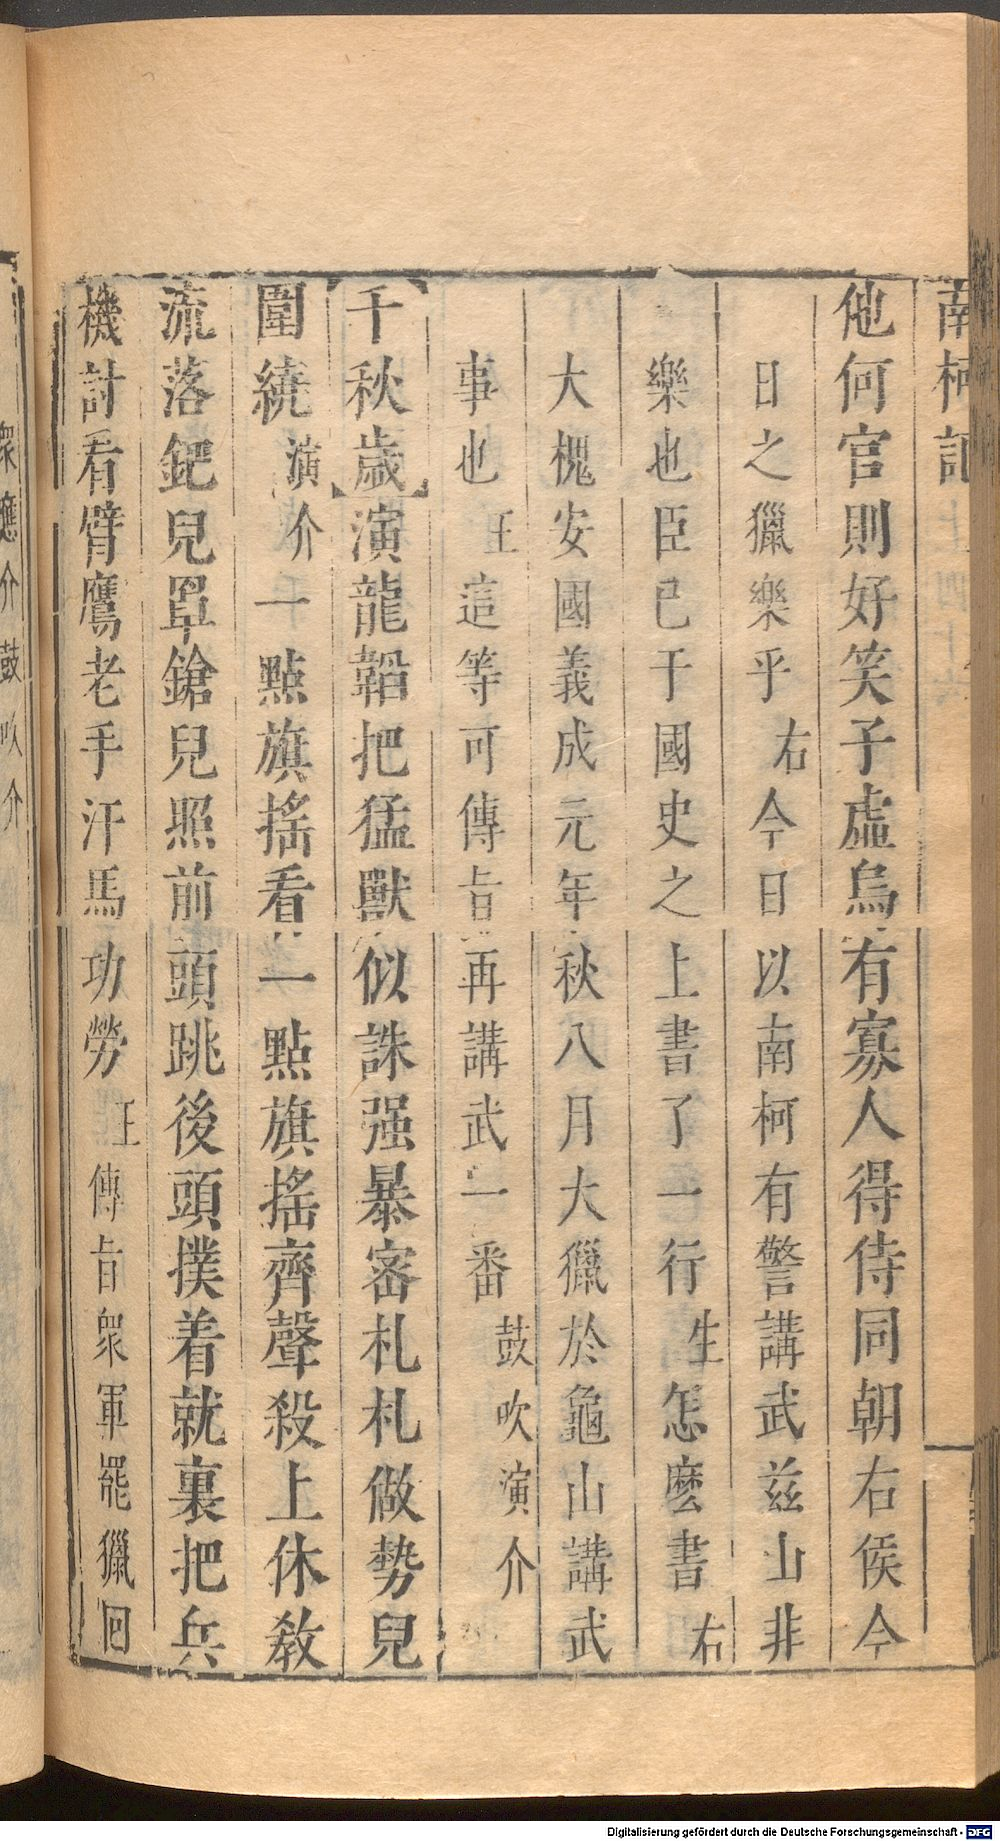 南柯記
他何官則好笑子虛烏有寡人得侍同朝右侯今
日之獵樂乎右今日以南柯有警講武茲山非
樂也臣已于國史之上書了一行生怎麼書右
大槐安國義成元年秋八月大獵於龜山講武
事也王這等可傳旨再講武一番鼓吹演介
千秋歲演龍韜把猛獸似誅强暴審札札做勢兒
圍繞演介一點旗搖看一點旗搖齊聲殺上休教
流落鈀兒罩鎗兒照前頭跳後頭撲着就裏把兵
機討看臂鷹老手汗馬功勞王傳旨眾軍罷獵回
眾應介鼓吹介
Digitalisierung gefördert durch die Deutsche Forschungsgemeinschaft - DFG